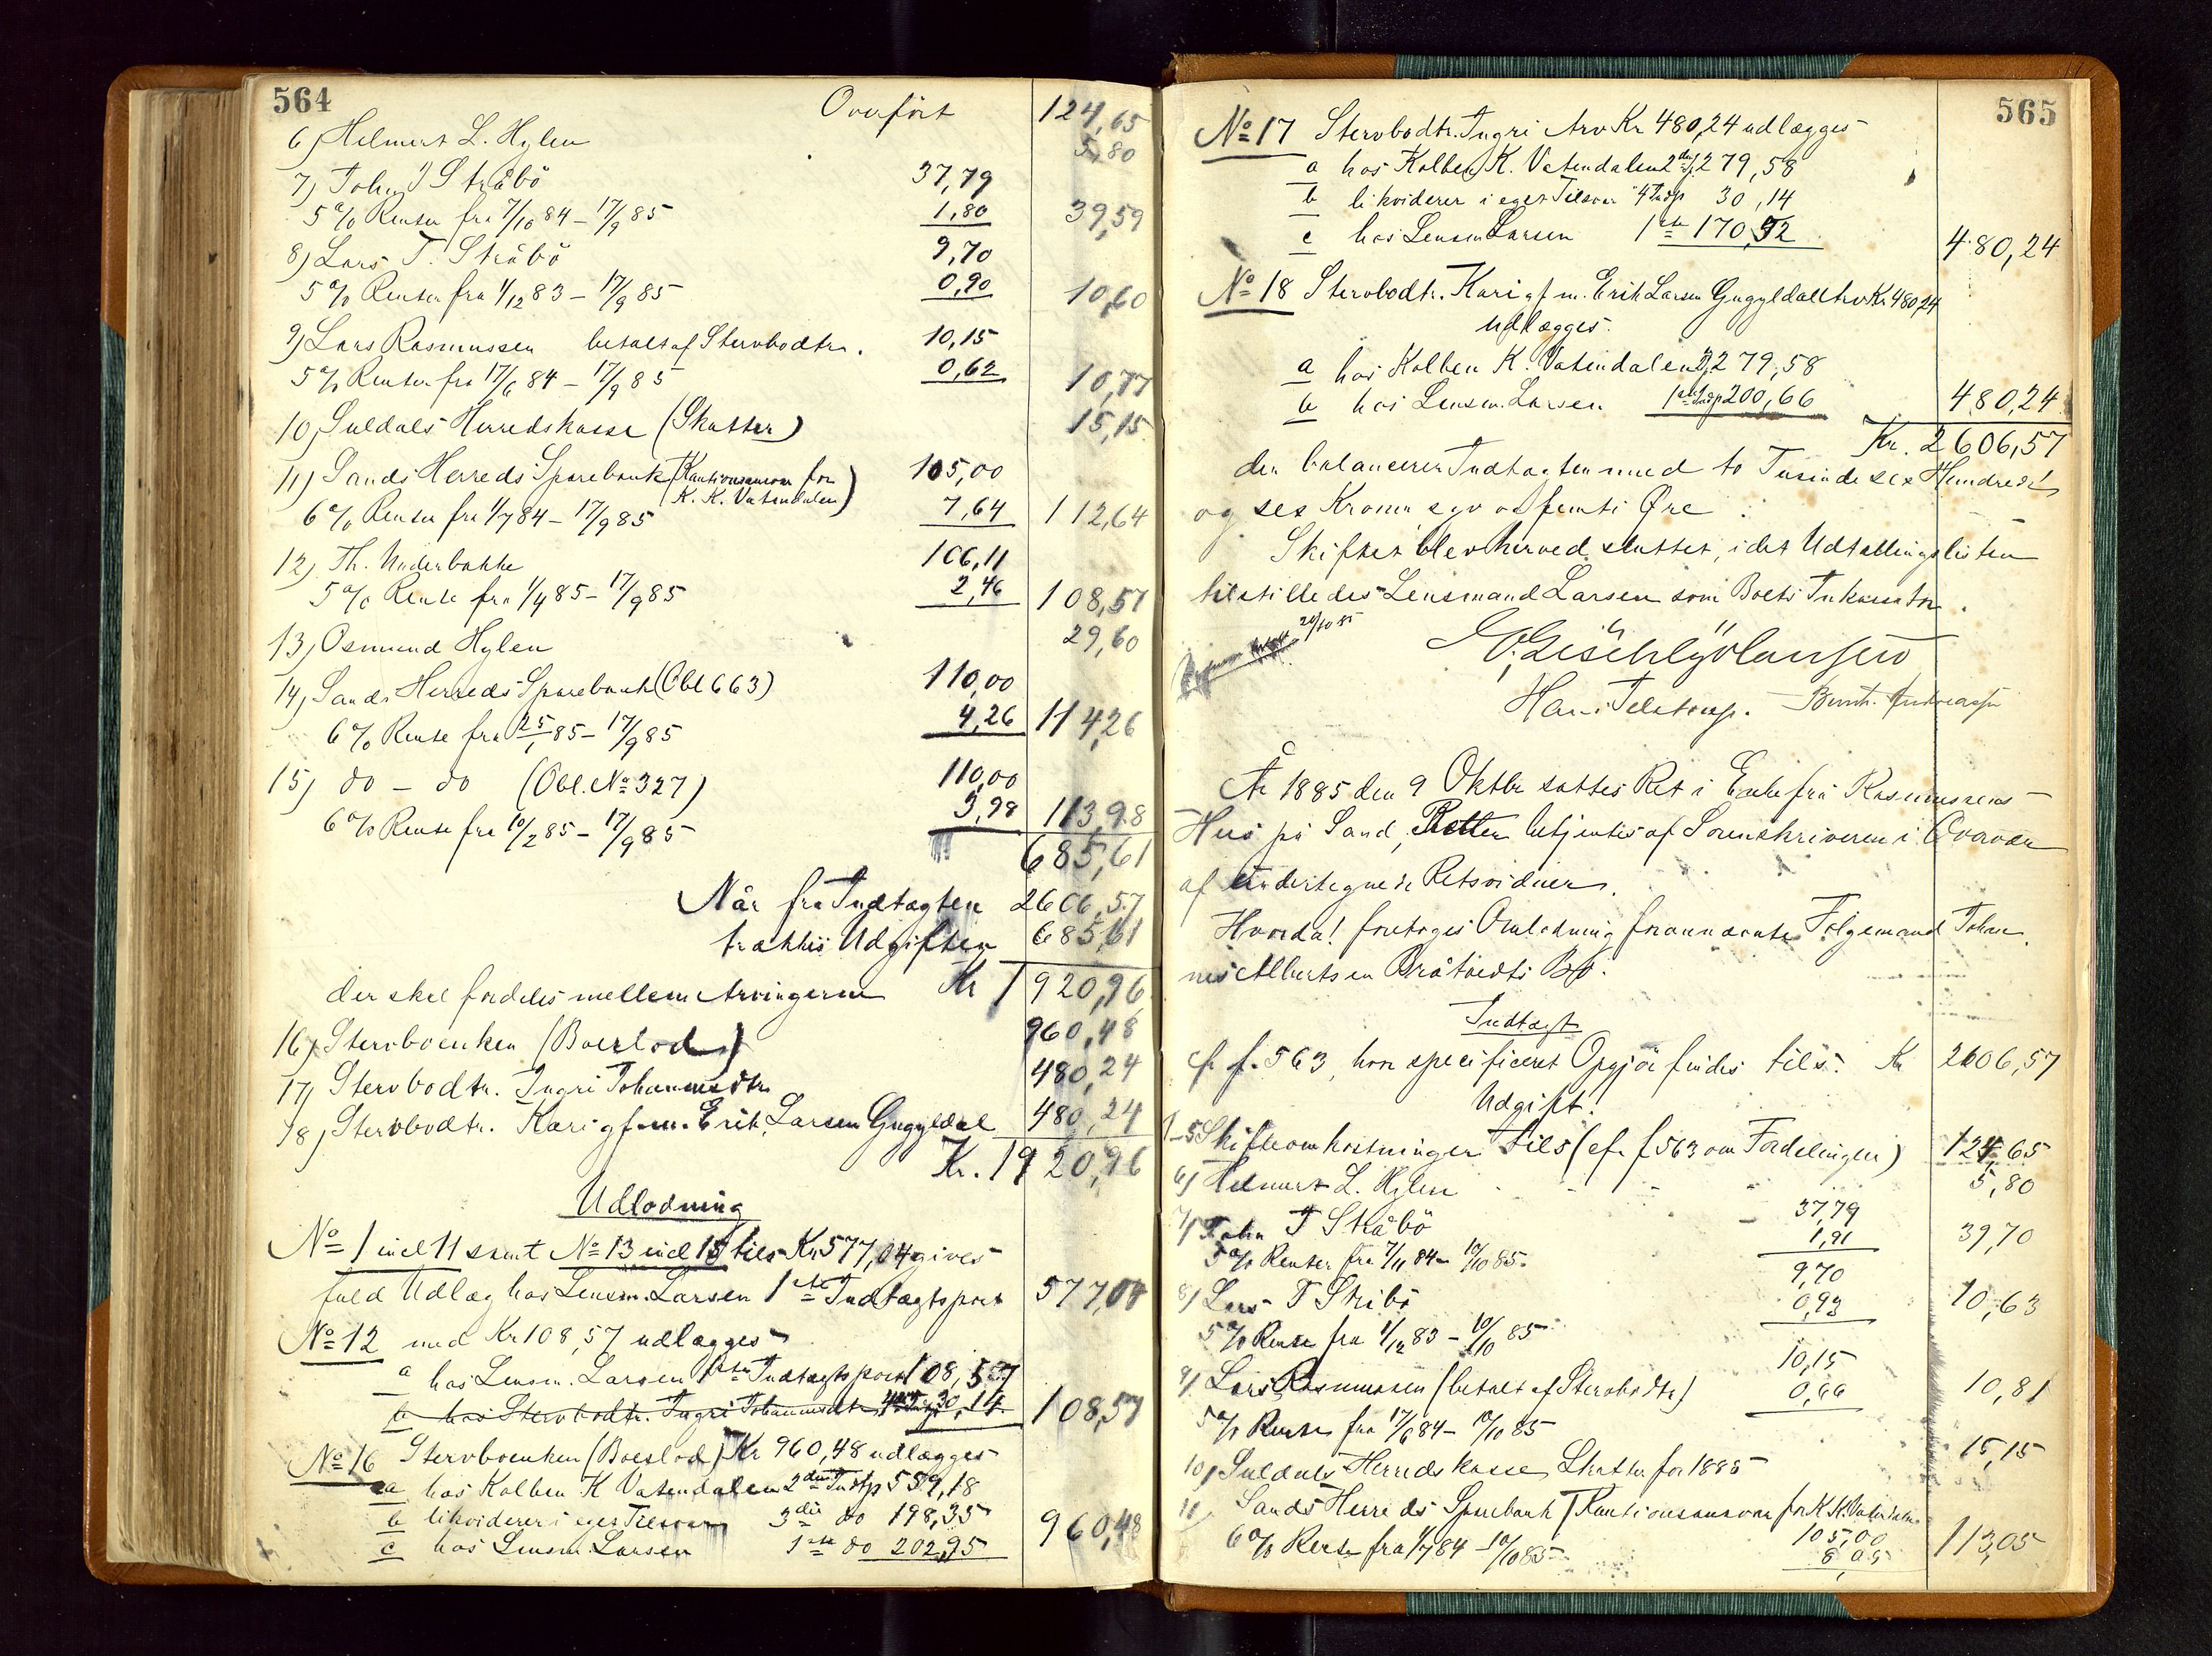 564
Overført 124,65
6) Helmert L. Hylen 5,80
7) John T Stråbö 37,79
5% Renter fra 7/10 84 – 17/9 85 1,80 39,59
8) Lars T. Stråbö 9,70
5% Renter fra 1/12 83 – 17/9 85 0,90 10,60
9) Lars Rasmussen betalt af Stervbodtr. 10,15
5% Renter fra 17/6 84 – 17/9 85 0,62 10,77
10) Suldals Herredskasse (Skatter) 15,15
11) Sands Herreds Sparebank (Kautionsansvar for
K. K. Vatendalen) 105,00
6% Renter fra 1/7 84 – 17/9 85 7,64 112,64
12) Th. Underbakke 106,11
5% Rente fra 1/4 85 – 17/9 85 2,46 108,57
13) Osmund Hylen 29,60
14) Sands Herreds Sparebank (Obl 663) 110,00
6% Rente fra 25/1 85 – 17/9 85 4,26 114,26
15) do – do (Obl. No 327) 110,00
6% Rente fra 10/2 85 – 17/9 85 3,98 113,98
685,61
Når fra Indtægten 2606,57
trækkes Udgiften 685,61
der skal fordeles mellem Arvingerne Kr 1920,96
16) Stervboenken (Boeslod) 960,48
17) Stervbodtr. Ingri Johannesdtr 480,24
18) Stervbodtr. Kari gf. m. Erik Larsen Guggedal 480,24
Kr. 1920,96
Udlodning
No 1 incl 11 samt No 13 incl 15 tils Kr 577,04 gives
fuld Udlæg hos Lensm. Larsen 1ste Indtægtspost 577,04
No 12 med Kr 108,57 udlægges
a hos Lensm. Larsen 1ste Indtægtspost 108,57
b hos Stervbodtr. Ingri Johannesdtr 30,14 108,57
No 16 Stervboenken (Boeslod) Kr 960,48 udlægges
a hos Kolben K Vatendalen 2den Indtp 559,18
b likviderer i eget Tilsvar 3die do 198,35
c hos Lensm. Larsen 1ste do 202,95 960,48
565
No 17 Stervbodtr. Ingri Arv Kr 480,24 udlægges
a hos Kolben K. Vatendalen 2den 279,58
b likviderer i eget Tilsvar 4 Indtp 30,14
c hos Lensm Larsen 1ste 170,52 480,24
No 18 Stervbodtr. Kari gf. m. Erik Larsen Guggedal Arv Kr 480,24
udlægges.
a hos Kolben K. Vatendalen 2, 279,58
b hos Lensm. Larsen 1ste Indtp 200,66 480,24
Kr. 2606,57
der balancerer Indtægten med to Tusinde sex Hundrede
og sex Kroner syv og femti Øre.
Skiftet blev herved sluttet, idet Udtællingslisten
tilstilledes Lensmand Larsen som Boets Inkassator.
20/10 85
Hans Telstrup. Bernt. Andreassen
År 1885 den 9 Oktbr sattes Ret i Enkefru Rasmussens
Hus på Sand, Retten betjentes af Sorenskriveren i Overvær
af undertegnede Retsvidner.
Hvorda! foretoges Omlodning forannævnte Følgemand Johan-
nes Albertsen Bråtveits Bo.
Indtægt
cfr f. 563, hvor specificeret Opgjör findes tils. Kr 2606,57
Udgift!
1–5 Skifteomkostninger tils (cfr f 563 om Fordelingen) 124,65
6) Helmert L. Hylen 5,80
7) John T Stråbö 37,79
5% Renter fra 7/10 84 – 10/10 85. 1,91 39,70
8) Lars T Stråbö 9,70
5% Rente fra 1/12 83 – 10/10 85 0,93 10,63
9) Lars Rasmussen (betalt af Stervbodtr) 10,15
5% Rente fra 17/6 84 – 10/10 85 0,66 10,81
10) Suldals Herredskasse, Skatter for 1885 15,15
11) Sands Herreds Sparebank (Kautionsansvar for K K. Vatendalen
105,00
6% Rente fra 1/7 84 – 10/10 85 8,05 113,05